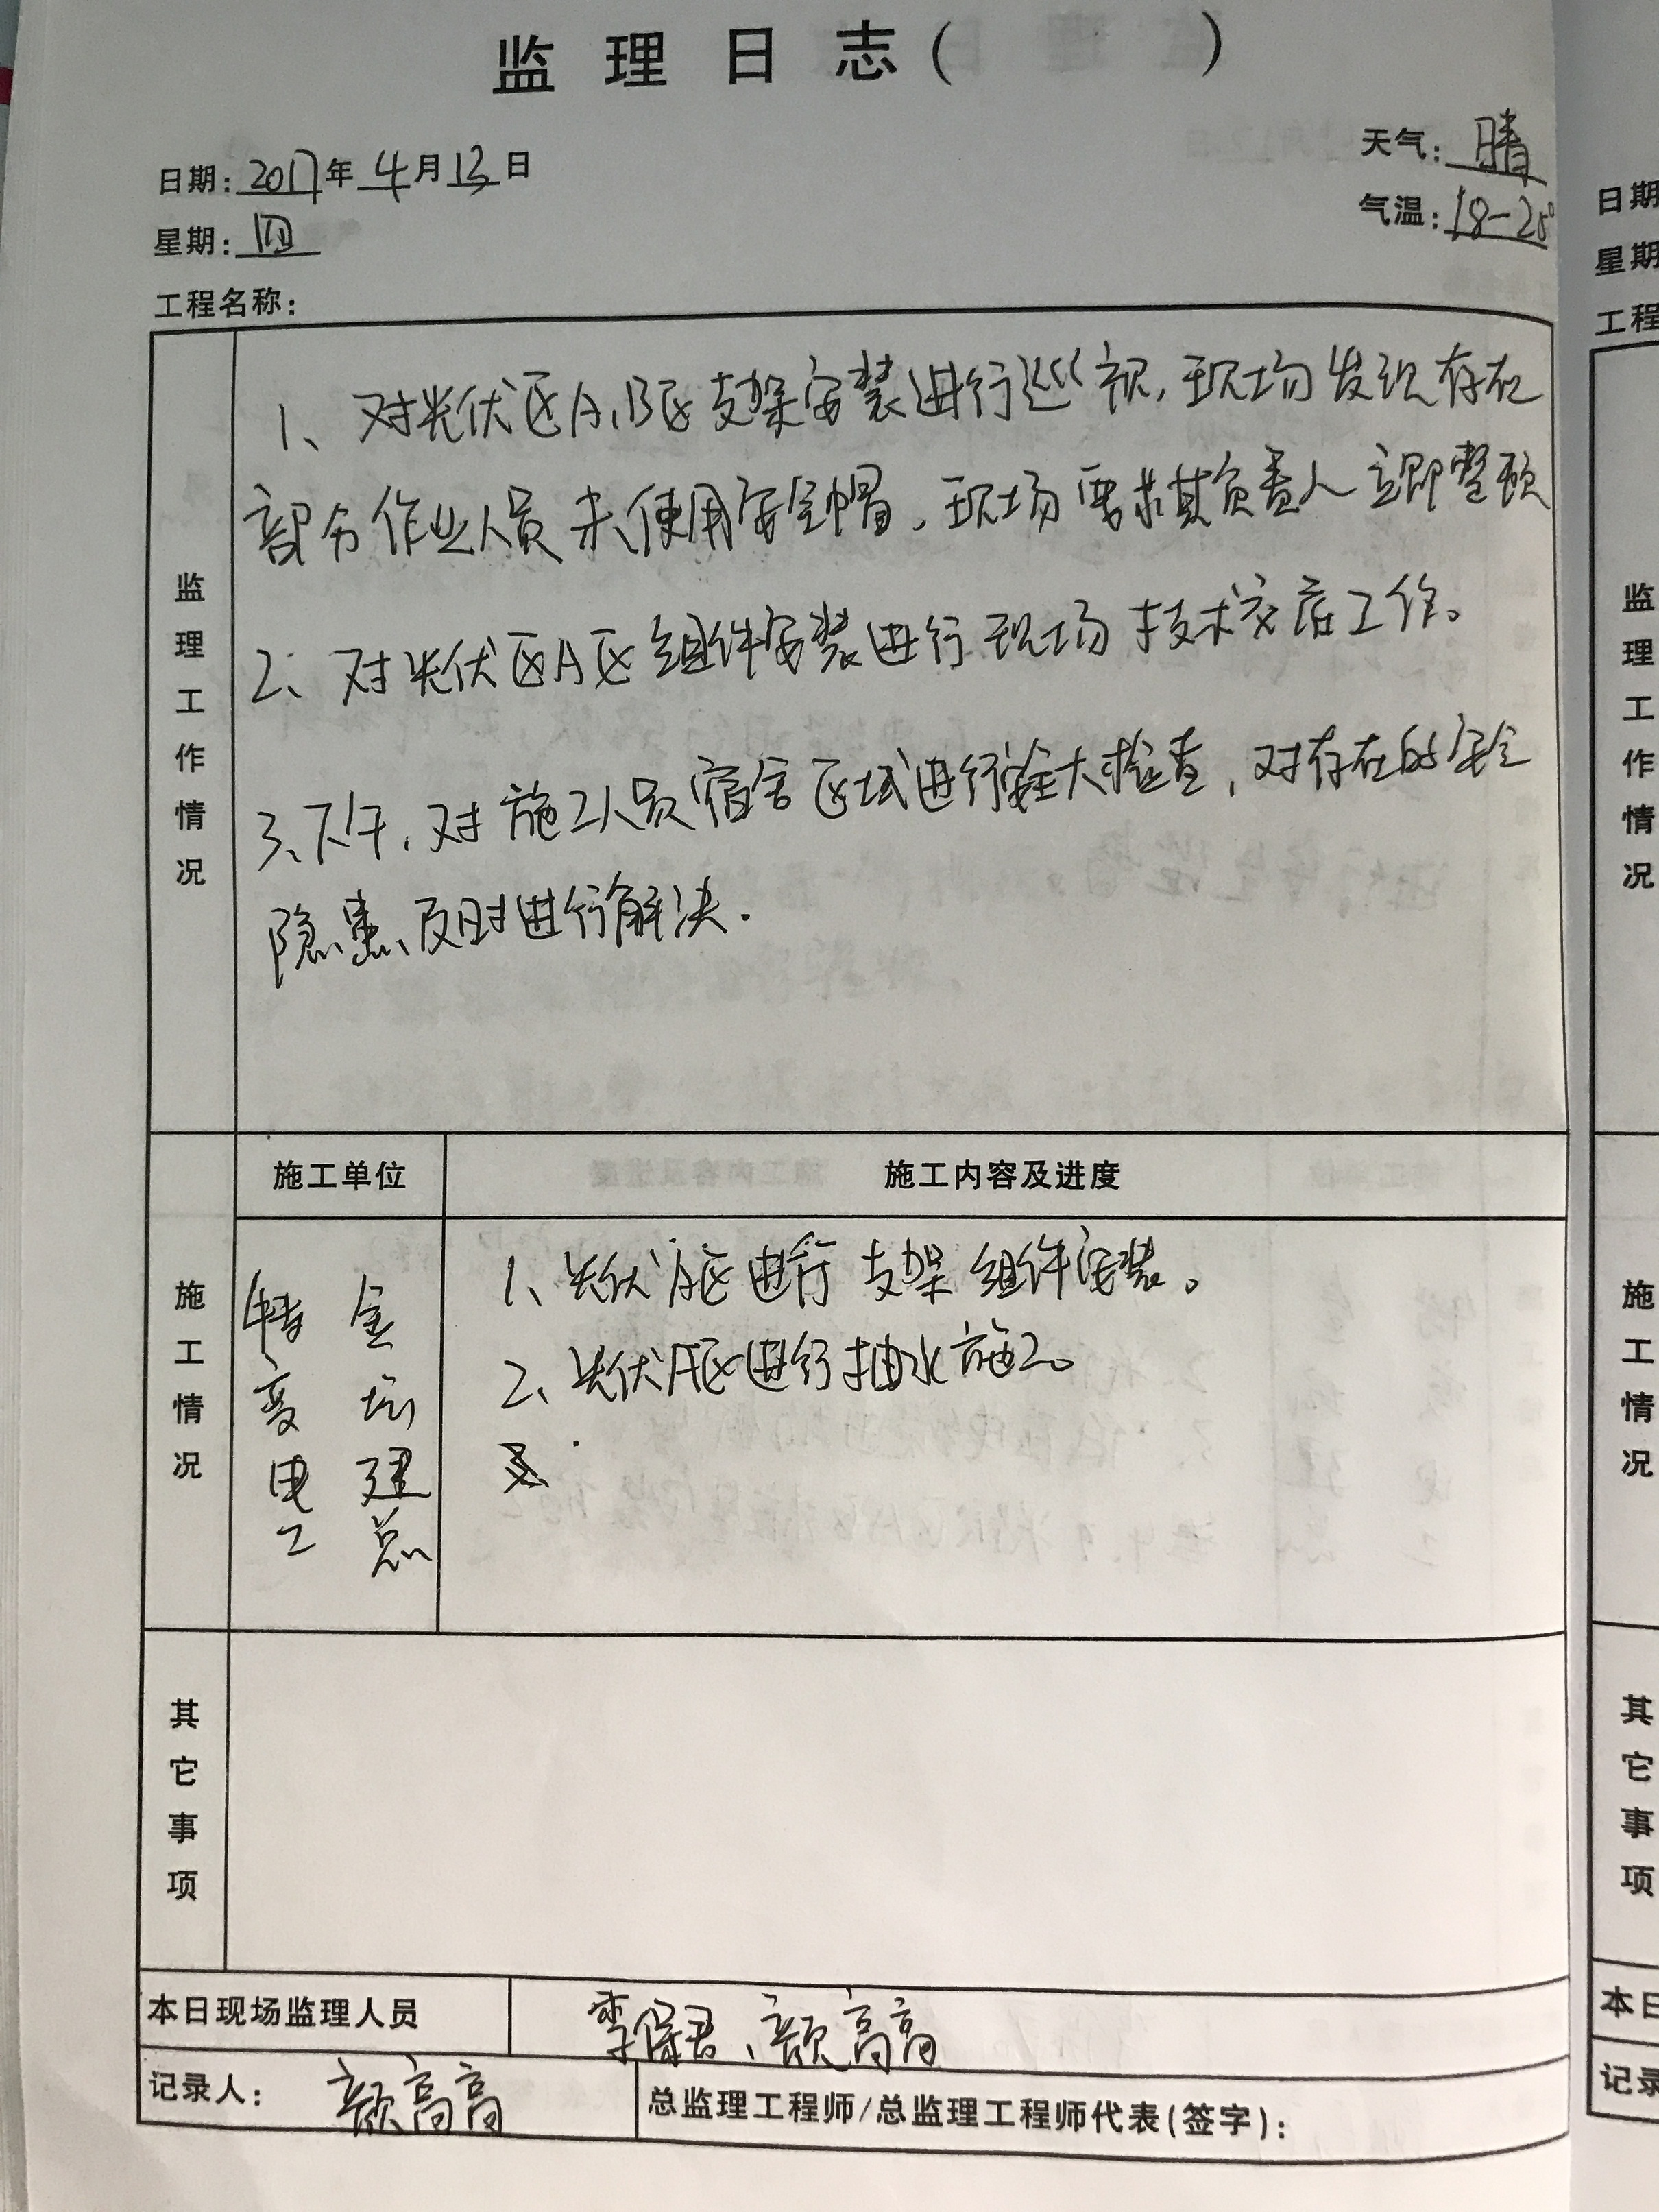 监理日志(　　)
日期:2017年4月13日
天气:晴
星期:四
气温:18-28°
工程名称:
监理工作情况
1、对光伏区A、B区支架安装进行巡视,现场发现存在
部分作业人员未使用安全帽,现场要求其负责人立即整顿
2、对光伏区A区组件安装进行现场技术交底工作。
3、下午,对施工人员宿舍区域进行安全大检查,对存在的安全
隐患及时进行解决.
施工单位
施工内容及进度
施工情况
特变电工
金坛建总
1、光伏A区进行支架组件安装。
2、光伏A区进行抽水施工。
其它事项
本日现场监理人员
李保君、颜高高
记录人:颜高高
总监理工程师/总监理工程师代表(签字):
日期
星期
工程
监理工作情况
施工情况
其它事项
本日
记录